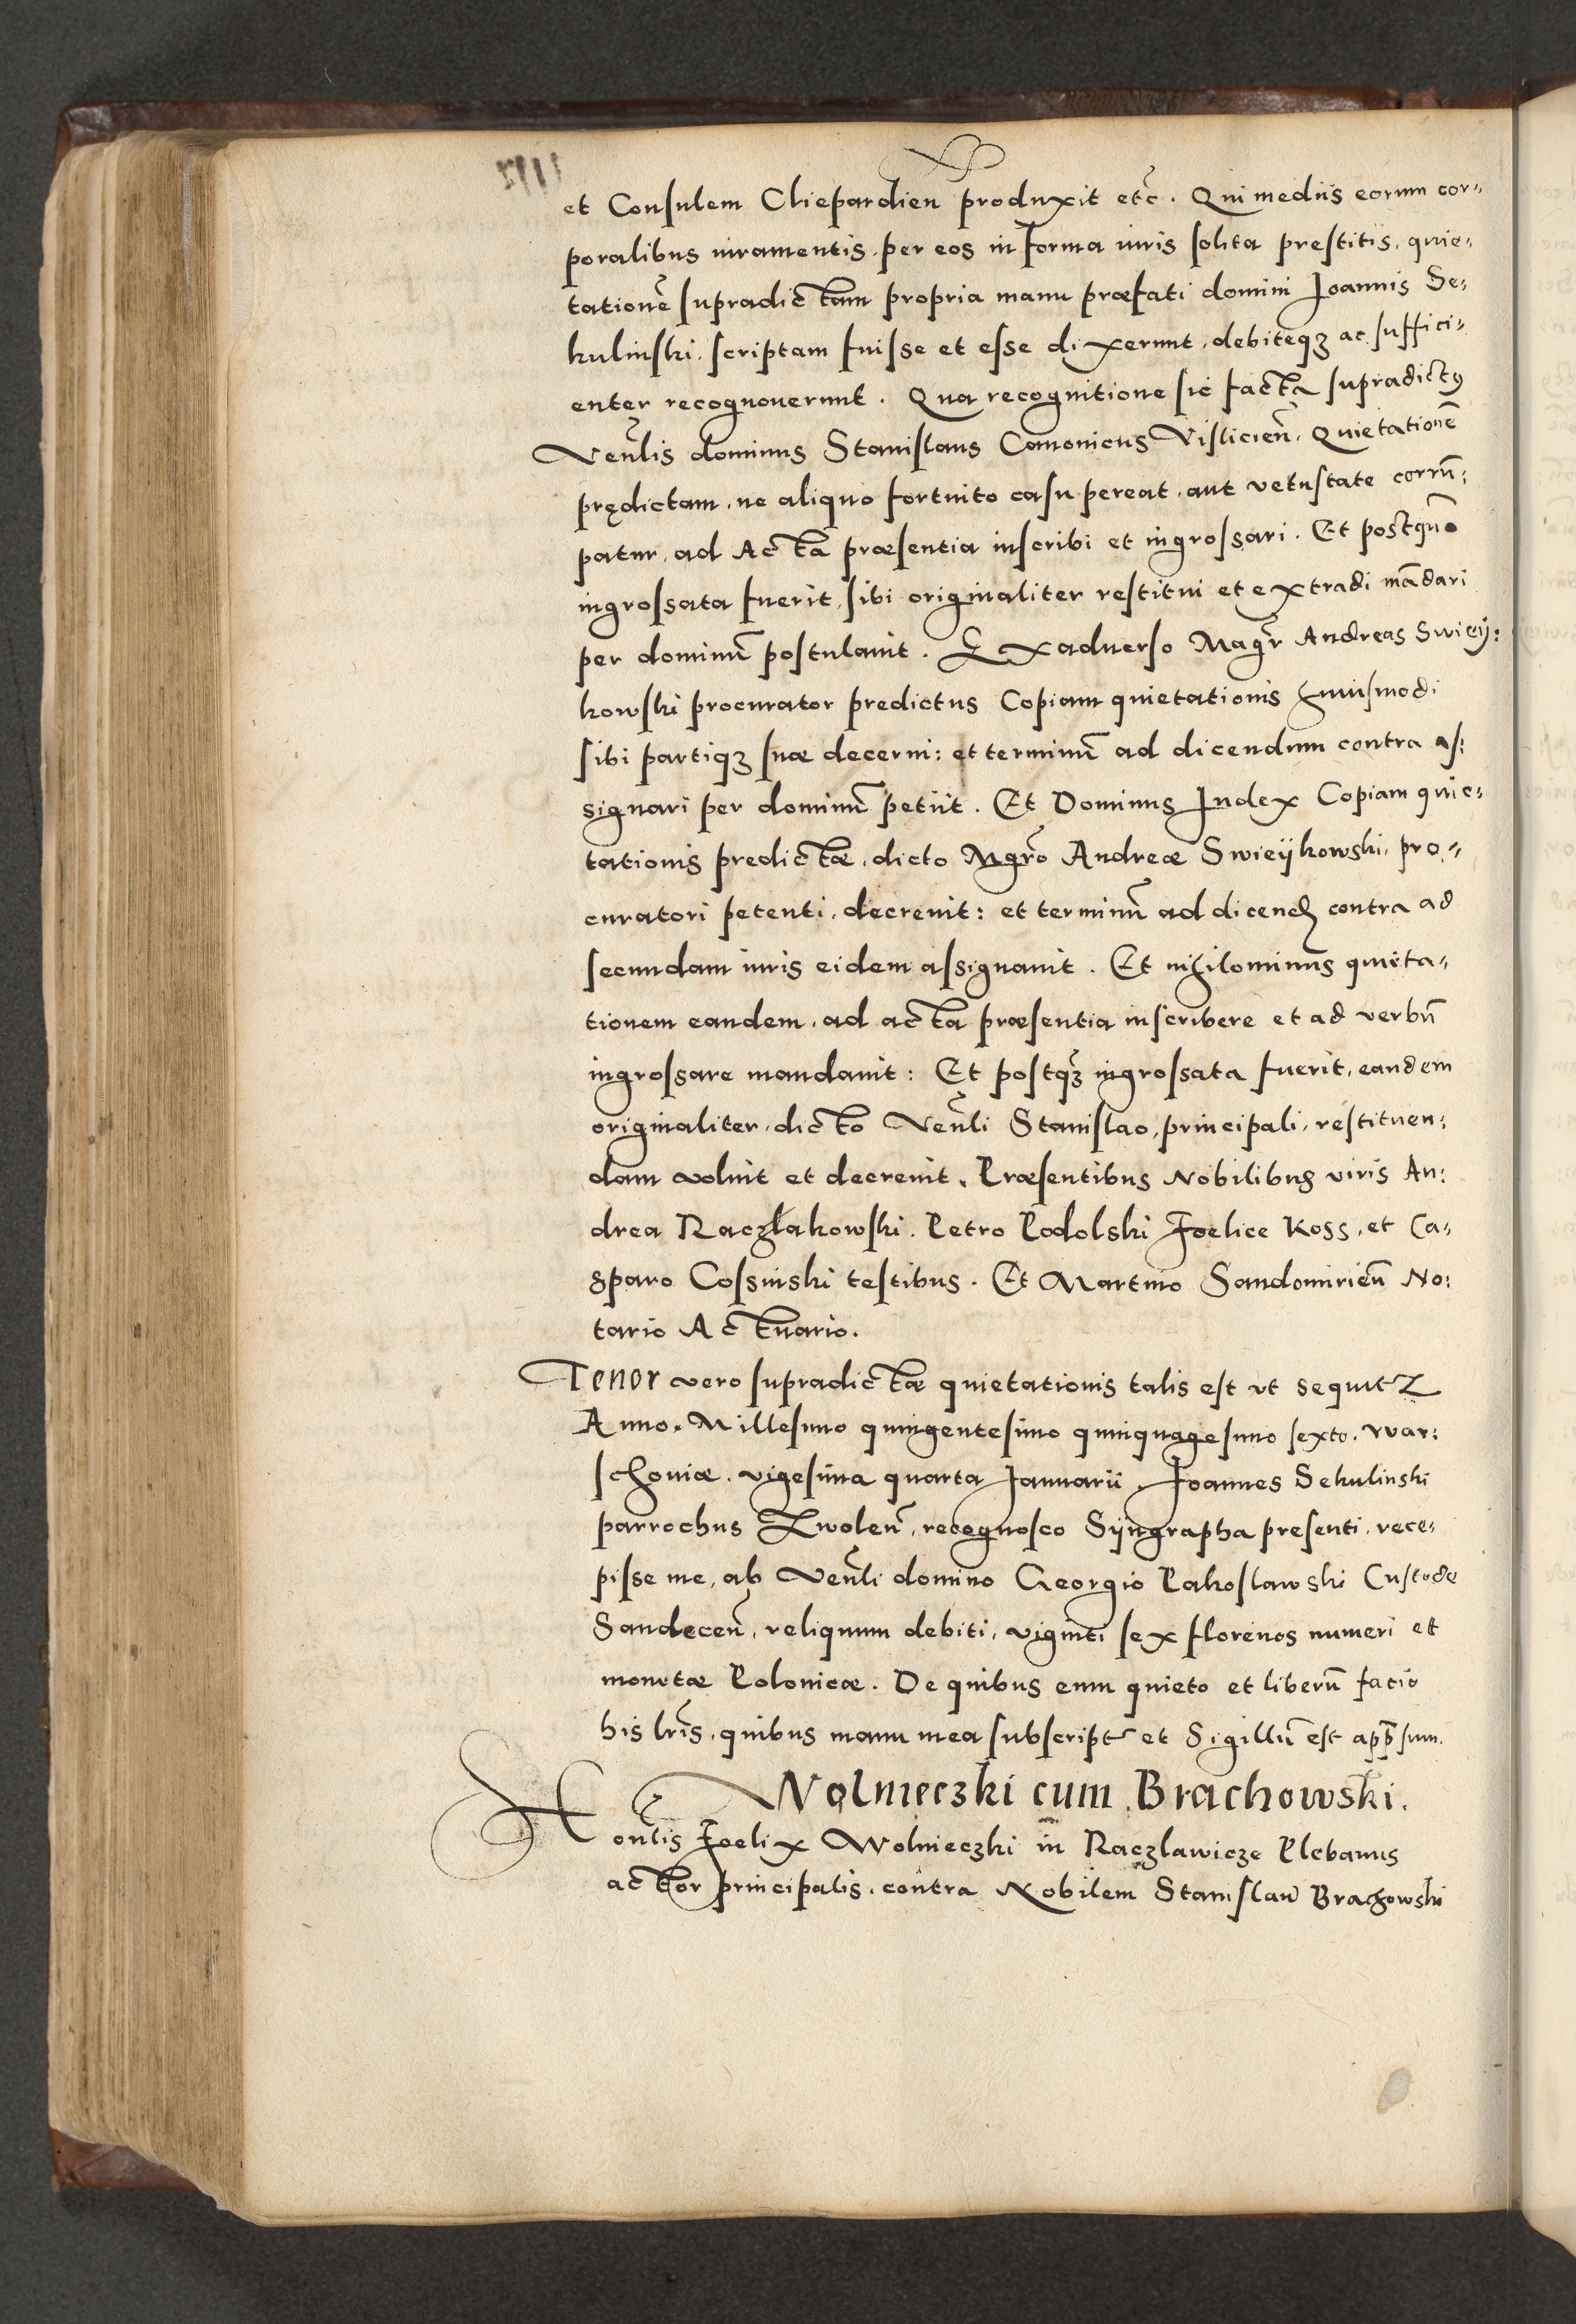 et Consulem Cliepardien̄ produxit etc̄. Qui mediis eorum cor„
poralibus iuramentis, per eos in forma iuris solita prestitis, quie„
tationē supradictam propria manu præfati domini Joannis Se„
kulinski, scriptam fuisse et esse dixerunt, debiteqʒ ac suffici„
enter recognouerunt. Qua recognitione sic facta supradictꝰ
Venl̄is dominus Stanislaus Canonicus Visliciēn̄. Quietationē
prędictam, ne aliquo fortuito casu pereat, aut vetustate corrū:
patur, ad Acta præsentia inscribi et ingrossari. Et postquā
ingrossata fuerit, sibi originaliter restitui et extradi mādari
per dominū postulauit. Exaduerso Magr̄ Andreas Swieÿ:
kowski procurator predictus Copiam quietationis huiusmodi
sibi partiqʒ suæ decerni: et terminū ad dicendum contra as:
signari per dominū petiit. Et Dominus Judex Copiam quie:
tationis predictæ, dicto Mgr̄o Andreæ Swieÿkowski, pro„
curatori petenti, decreuit: et terminū ad dicend̄ contra ad
secundam iuris eidem assignauit. Et nihilominus quieta„
tionem eandem, ad acta præsentia inscribere et ad verbū
ingrossare mandauit: Et postqʒ̄ ingrossata fuerit, eandem
originaliter, dicto Venl̄i Stanislao, principali, restituen:
dam voluit et decreuit. Præsentibus Nobilibus viris An:
drea Raczlakowski. Petro Podolski Foelice Koss, et Ca„
sparo Cossinski testibus. Et Martino Sandomiriēn̄ No:
tario Actuario.
Tenor vero supradictæ quietationis talis est vt sequitr
Anno. Millesimo quingentesimo quinquagesimo sexto. War:
schouiæ. vigesima quarta Januarii. Joannes Sekulinski
parrochus Zwolen̄, recognosco Sÿngrapha presenti, rece„
pisse me, ab Venl̄i domino Georgio Pakoslawski Custode
Sandecen̄, reliquum debiti, viginti sex florenos numeri et
monetæ Polonicæ. De quibus eum quieto et liberū facio
his lr̄is, quibus manu mea subscriptr et Sigillū est app̄ssum.
Wolnieczki cum Brachowski.
Honl̄is Foelix Wolnieczki in Raczlawicze Plebanus
actor principalis, contra Nobilem Stanislaū Brachowski